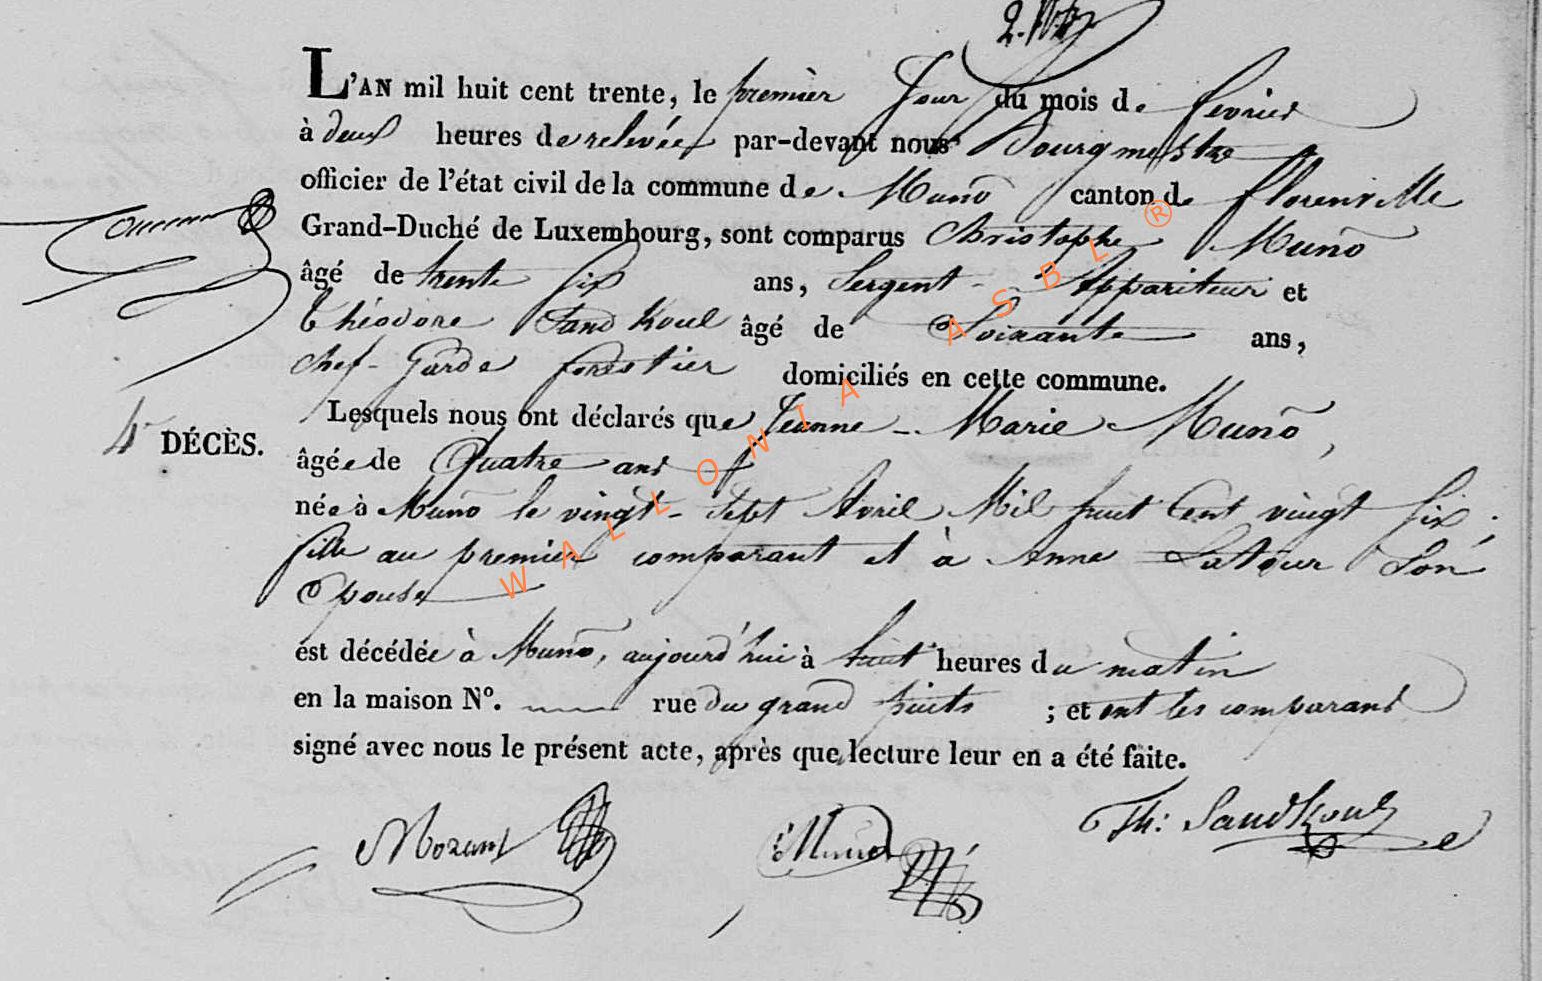 L'AN mil huit cent trente, le premièr Jour du mois de fevrier
à deux heures de relevée par-devant nous Bourgmestre
officier de l'état civil de la commune de Muno canton de florenville
Grand-Duché de Luxembourg, sont comparus Christophe Muno
âgé de trente six ans, Sergent - Appariteur et
Théodore Sandkoul âgé de Soixante ans,
chef-Garde forestier domiciliés en cette commune.
Lesquels nous ont déclarés que Jeanne - Marie Muno,
4 DÉCÈS.
âgée de Quatre ans
née à Muno le vingt-sept Avril Mil huit Cent vingt Six.
fille au premier comparant et à Anne Latour Son
Epouse
est décédée à Muno, aujourd'hui à huit heures du matin
en la maison N°. rue du grand puits ; et ont les comparans
signé avec nous le présent acte, après que lecture leur en a été faite.
Mozans Muno Th: Sandkoul
WALLONIA ASBL ®